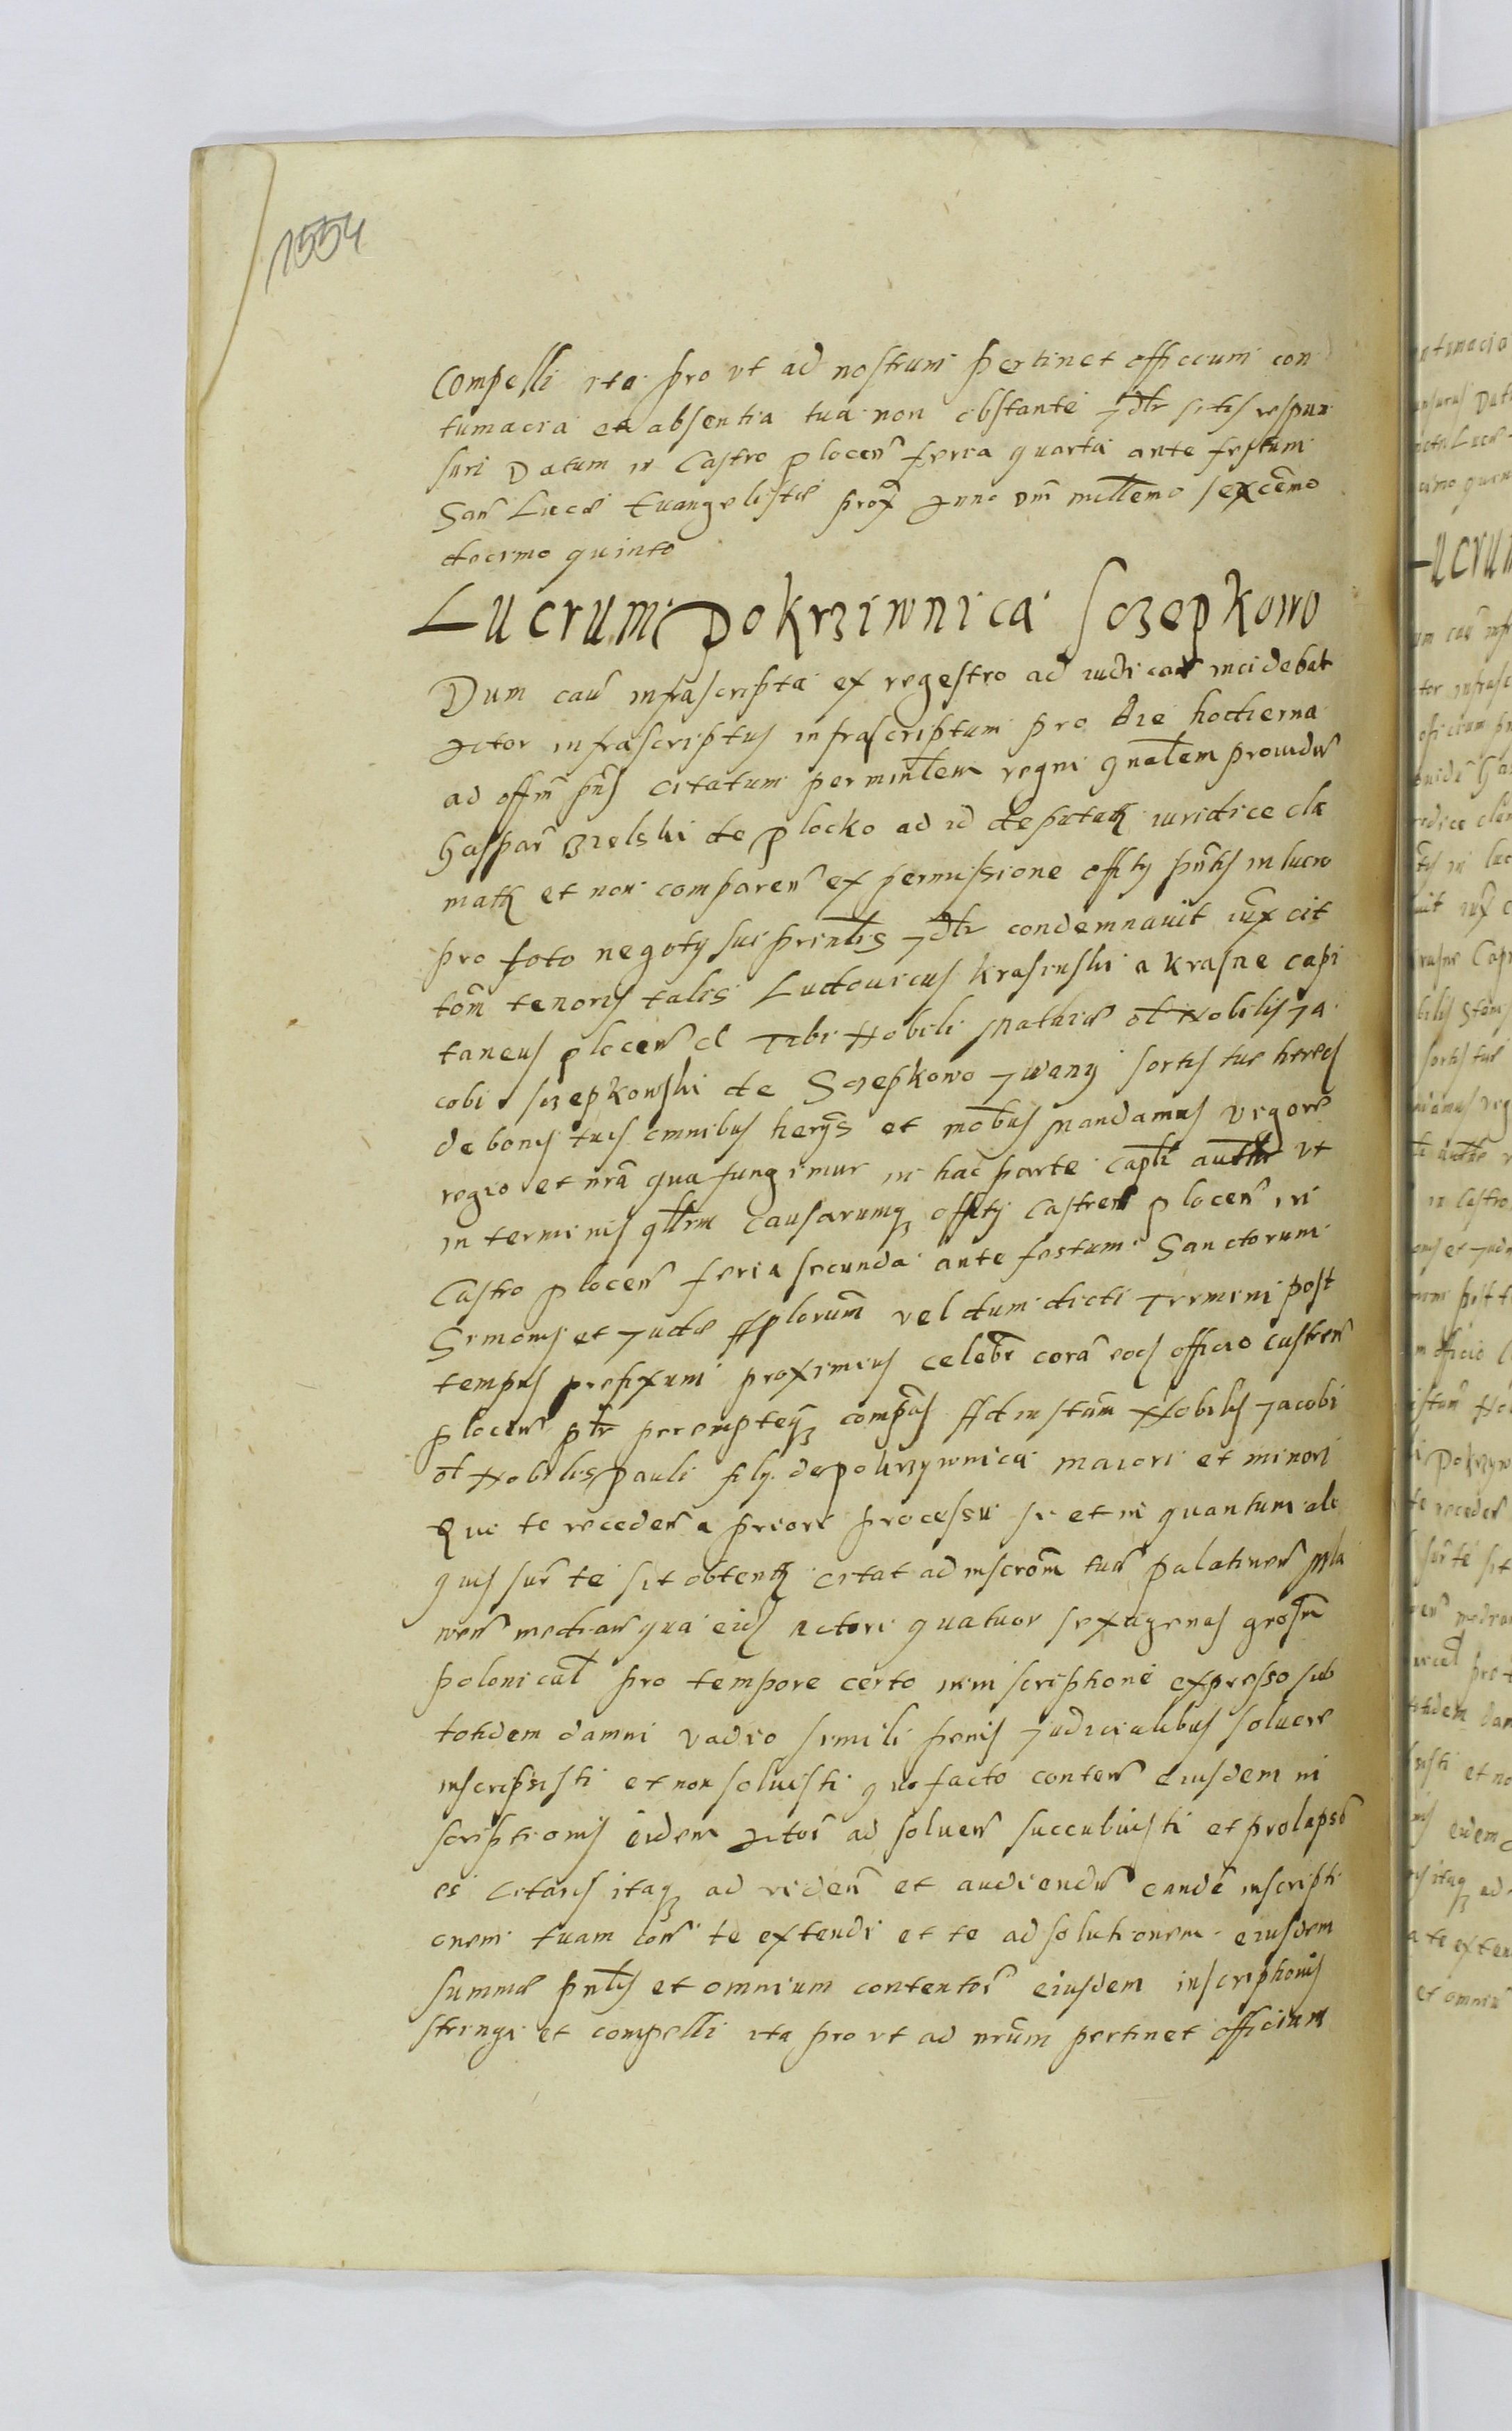 1554
Compelli ita pro vt ad nostrum pertinet officium con
tumacia et absentia tua non obstante Jdtr sitis respon
suri Datum in Castro plocen feria quarta ante festum
San Lucæ Euangelistæ prox Anno dm millemo sexcemo
decimo quinto
Lucrum Pokrziwnica Sczepkowo
Dum cau infrascripta ex regestro ad iudican incidebat
Actor infrascriptus infrascriptum pro die hodierna
ad offm pns citatum per minlem regni gnalem prouidum
Gaspar Bielski de plocko ad id deputat iuridice cla
mat et non comparen ex permissione offity pntis in lucro
pro toto negoty sui prinlis Jdtr condemnauit iux cit
tom tenoris talis Ludouicus Krasinski a Krasne capi
taneus plocen et Tibi Nobili Mathiæ ol Nobilis Ja
cobi Sczepkowski de Sczepkowo Jwany sortis tuæ heredi
de bonis tuis omnibus herys et mobus mandamus vigore
regio et nra qua fungimur in hac parte capli authe vt
in terminis qlrm causarumq offity Castren plocen in
Castro plocen feria secunda ante festum Sanctorum
Simonis et Judæ Applorum vel dum dicti Termini post
tempus prefixum proximius celebr cora eod officio castren
plocen ptr perempteq compas Ad instam Nobilis Jacobi
ol Nobilis Pauli fily de pokrzywnica maiori et minori
Qui te receden a priori processu si et in quantum ali
quis sur te sit obtent citat ad inscrom tua palatinen Pla
nen median qua eid Actori quatuor sexagenas grosm
polonical pro tempore certo in inscriptione expresso sub
totidem damni vadio simili penis Judicialibus soluere
inscripsisti et non soluisti quo facto conten eiusdem in
scriptionis eidem Actori ad soluen succubuisti et prolapso
es Citaris itaq ad viden et audiendu eande inscripti
onem tuam con te extendi et te ad solutionem eiusdem
summæ pnlis et omnium contentor eiusdem inscriptionis
stringi et compelli ita pro vt ad nrum pertinet officium